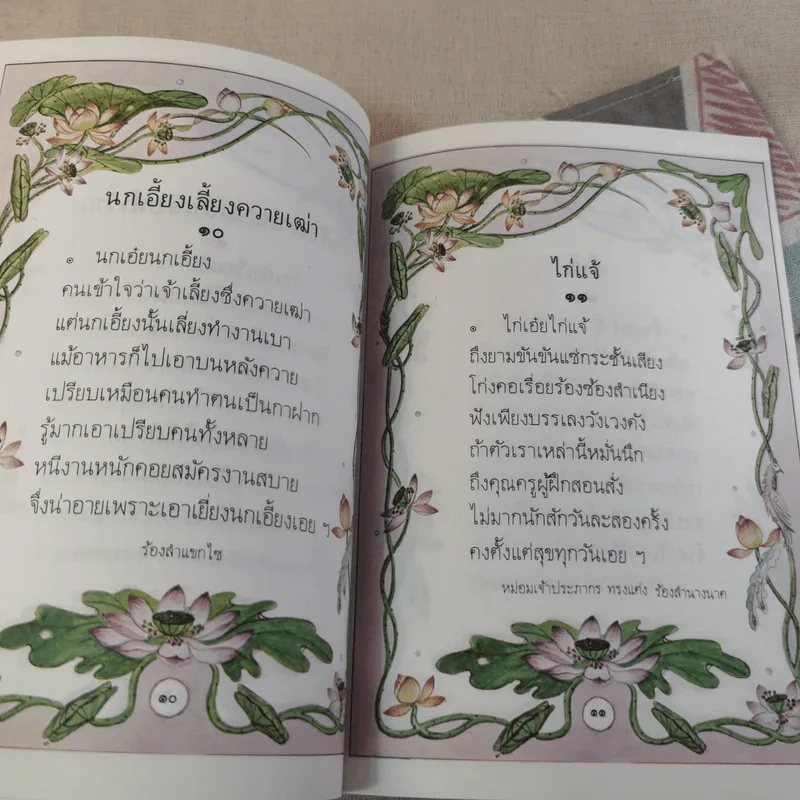 นกเอี้ยงเลี้ยงควายเฒ่า
๑๐
๑ นกเอ๋ยนกเอี้ยง
คนเข้าใจว่าเจ้าเลี้ยงซึ่งควายเฒ่า
แต่นกเอี้ยงนั้นเลี่ยงทำงานเบา
แม้อาหารก็ไปเอาบนหลังควาย
เปรียบเหมือนคนทำตนเป็นกาฝาก
รู้มากเอาเปรียบคนทั้งหลาย
หนีงานหนักคอยสมัครงานสบาย
จึงน่าอายเพราะเอาเยี่ยงนกเอี้ยงเอย ฯ
ร้องลำแขกไซ
๑๐
ไก่แจ้
๑๑
๑ ไก่เอ๋ยไก่แจ้
ถึงยามขันขันแซ่กระชั้นเสียง
โก่งคอเรื่อยร้องซ้องสำเนียง
ฟังเพียงบรรเลงวังเวงดัง
ถ้าตัวเราเหล่านี้หมั่นนึก
ถึงคุณครูผู้ฝึกสอนสั่ง
ไม่มากนักสักวันละสองครั้ง
คงตั้งแต่สุขทุกวันเอย ฯ
หม่อมเจ้าประภากร ทรงแต่ง ร้องลำนางนาค
๑๑